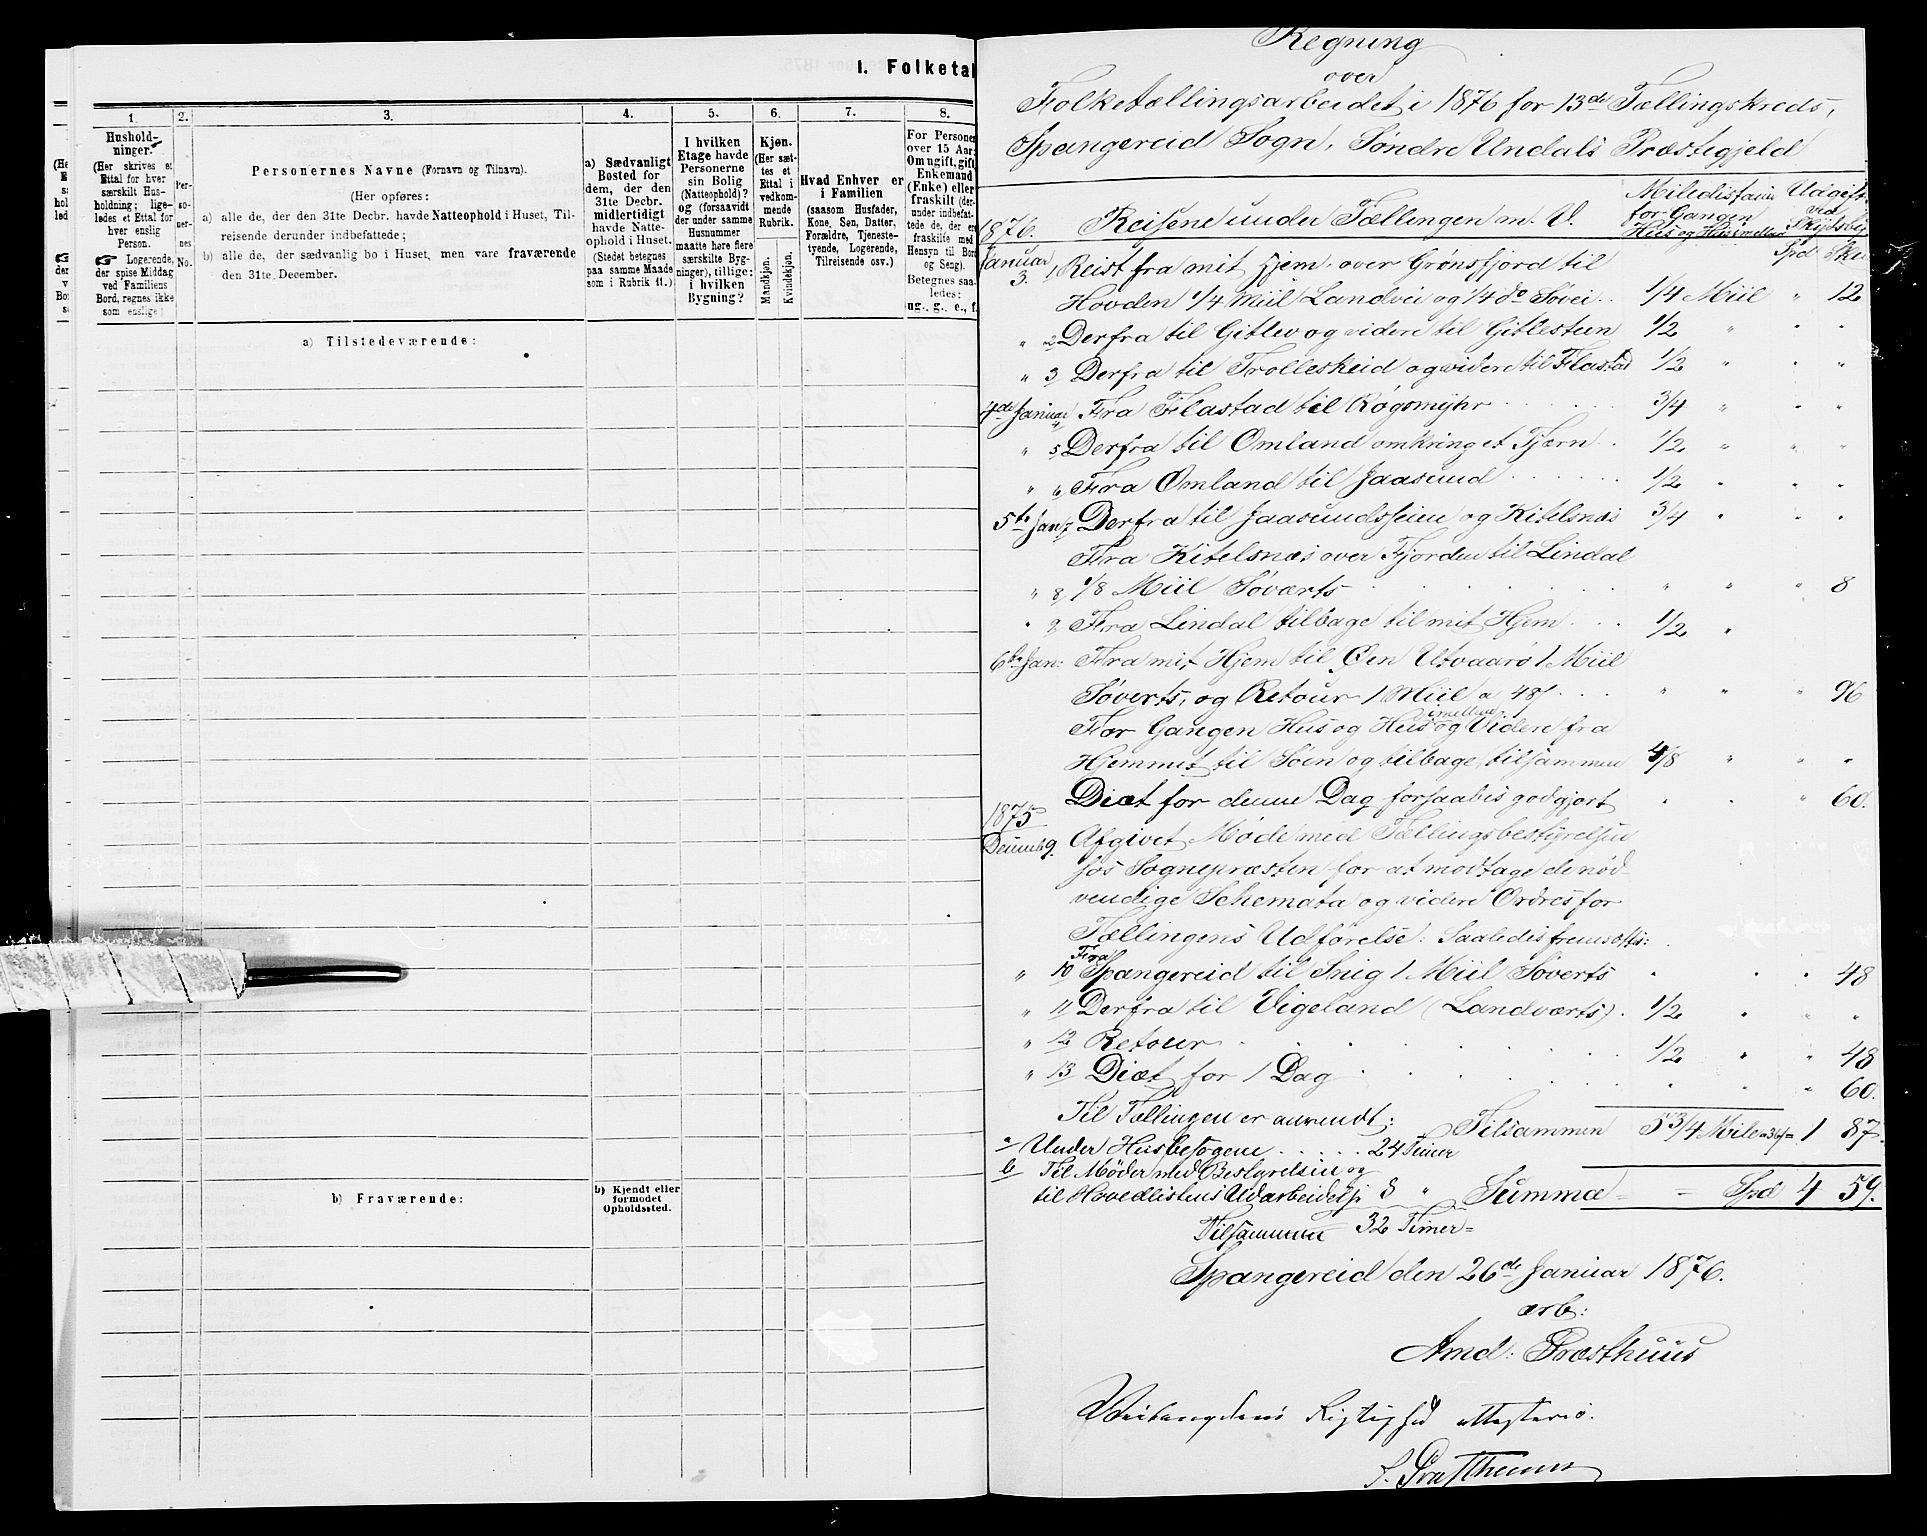 I. Folketal
1.
Hushold-
ninger.
(Her skrives et
Ettal for hver
særskilt Hus-
holdning; lige-
ledes et Ettal for
hver enslig
Person.
☛ Logerende,
der spise Middag
ved Familiens
Bord, regnes ikke
som enslige)
2.
Per-
so-
ner-
nes
No.
3.
Personernes Navne (Fornavn og Tilnavn).
(Her opføres:
a) alle de, der den 31te Decbr. havde Natteophold i Huset, Til-
reisende derunder indbefattede;
b) alle de, der sædvanlig bo i Huset, men vare fraværende
den 31te December.
4.
a) Sædvanligt
Bosted for
dem, der den
31te Decbr.
midlertidigt
havde Natte-
ophold i Huset.
(Stedet betegnes
paa samme Maade
som i Rubrik 11.)
5.
I hvilken
Etage havde
Personerne
sin Bolig
(Natteophold)?
og (forsaavidt
der under samme
Husnummer
maatte høre flere
særskilte Byg-
ninger), tillige:
i hvilken
Bygning?
6.
Kjøn.
(Her sæt-
tes et
Ettal i
vedkom-
mende
Rubrik.
Mandkjøn.
Kvindekjøn.
7.
Hvad Enhver er
i Familien
(saasom Husfader,
Kone, Søn, Datter,
Forældre, Tjeneste-
tyende, Logerende,
Tilreisende osv.)
8.
For Persone
over 15 Aar:
Om ugift, gift
Enkemand
(Enke) eller
fraskilt (der-
under indbefat-
tede de, der er
fraskilte med
Hensyn til Bord
og Seng).
Betegnes saa-
ledes:
ug., g., e., f.
a) Tilstedeværende:
b) Fraværende:
b) Kjendt eller
formodet
Opholdssted.
Regning
over
Folketællingsarbeidet i 1876 for 13de Tællingskreds,
Spangereid Sogn, Søndre Undals Præstegjeld
1876. Reisene under Tællingen m. V.
for Gangen
Hus og Hus imellem
Udgift
ved
Spd Sk
Januar 3. 1, Reist fra mit Hjem over Grønsfjord til
Hovden 1/4 Miil Landvei og 1/4 do Søvei .. 1/4 Miil " 12
" 2, Derfra til Gitlev og videre til Gitlesteen 1/2 " " "
" 3, Derfra til Trolleskeid og videre til Flastad 1/2 " " "
4de Januar 4, Fra Flastad til Røgsmyhr 3/4 " " "
" 5, Derfra til Omland omkring et Tjærn . 1/2 " " "
" 6, Fra Omland til Jaasund 1/2 " " "
5te Jan 7, Derfra til Jaasundsheien og Kitelsnæs 3/4 " " "
Fra Kitelsnæs over Fjorden til Lindal
" 8, 1/8 Miil Søværts " " " 8
" 9, Fra Lindal tilbage til mit Hjem . . 1/2 "
6te Jan: Fra mit Hjem til Øen Utvaare 1 Miil
Søverts, og Retour 1 Miil a 48 s. . . " " " 96
For Gangen Hus og Hus imellem og Videre fra
Hjemmet til Søen og tilbage, tilsammen 4/8 " " "
Diæt for denne Dag forsaavis godgjort " " " 60.
1875
9. Afgivet Møde med Tællingsbestyrelsen
hos Sognepræsten for at modtage de nød-
vendige Schemata og videre Ordres for
Tællingens Udførelse: Saaledes
" 10 Fra Spangereid til Snig 1 Miil Søverts " " " 48
" 11 Derfra til Vigeland (Landværts). 1/2 " " "
" 12 Retour . . . . 1/2 " " 48
" 13 Diæt for 1 Dag . . . . " " " 60.
Til Tællingen er anvendt: Tilsammen 5 3/4 Mile a 36 s = 1 87.
a Under Husbesøgene . . . . . 24 Timer
b Til Møder med Bestyrelsen og
til Hovedlistens Udarbeidelse 8 " Summa = = Spd 4 59.
Tilsammen 32 Timer =
Spangereid den 26de Januar 1876.
ærb:
Amd: Præsthuus
Rigtighed attesteres.